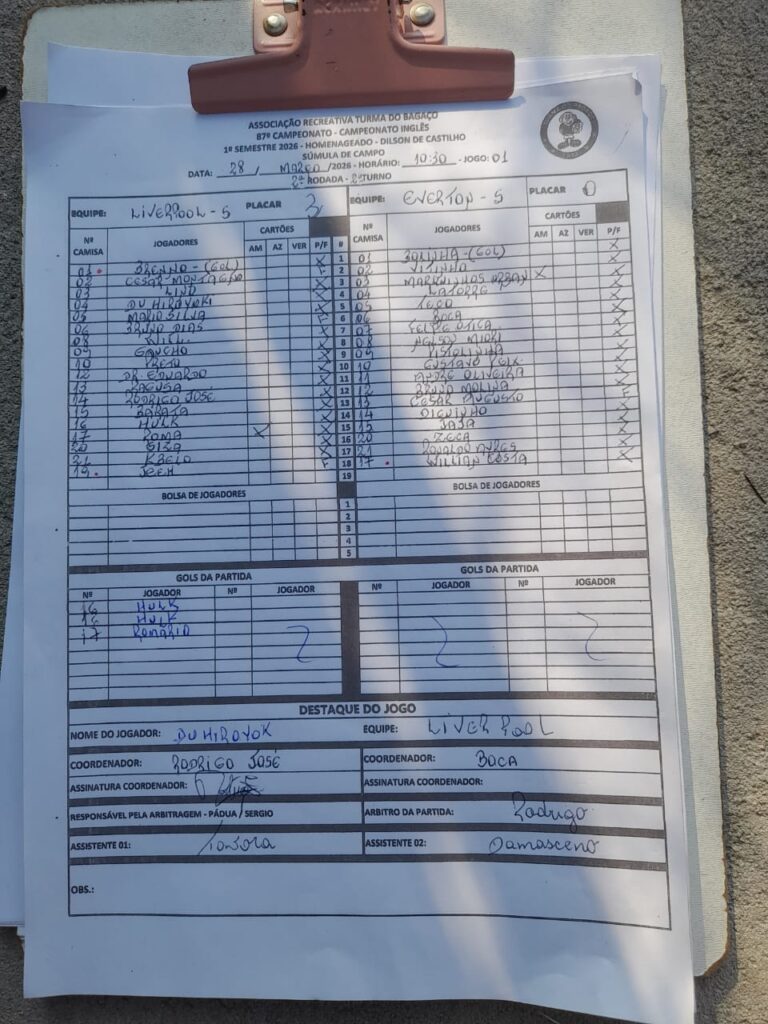 ASSOCIAÇÃO RECREATIVA TURMA DO BAGAÇO
87º CAMPEONATO - CAMPEONATO INGLÊS
1º SEMESTRE 2026 - HOMENAGEADO - DILSON DE CASTILHO
SÚMULA DE CAMPO
DATA: 28 / MARÇO /2026 - HORÁRIO: 10:30 - JOGO: 01
2ª RODADA - 2º TURNO
EQUIPE: LIVERPOOL - S PLACAR 3 EQUIPE: EVERTON - S PLACAR 0
Nº CAMISA JOGADORES CARTÕES AM AZ VER P/F # Nº CAMISA JOGADORES CARTÕES AM AZ VER P/F
01 BRENNO - (GOL) X 1 01 BOLINHA - (GOL) X
02 CESAR MONTAGIO F 2 02 VITINHO X
03 LINO X 3 03 X X
04 DU HIROYOKI X 4 04 X
05 MARIO SILVA X 5 05 TECO
06 BRUNO DIAS F 6 06 BOCA X
08 WILL X 7 07 FELIPE X
09 GAUCHO X 8 08 NELSON X
10 PRETO X 9 09 PISTOLINHA X
12 DR. EDUARDO X 10 10 GUSTAVO X
13 RAGUSA X 11 11 ANDRÉ OLIVEIRA X
14 RODRIGO JOSÉ X 12 12 BRUNO MOLINA X
15 BARATA X 13 13 CESAR AUGUSTO F
16 HULK X 14 14 DIGUINHO X
17 ROMA X X 15 15 JAJA X
20 GIZA X 16 20 ZECA X
21 KBELO X 17 21 RONALDO X
19 JEEH F 18 17 WILLIAN COSTA X
19
BOLSA DE JOGADORES BOLSA DE JOGADORES
1
2
3
4
5
GOLS DA PARTIDA GOLS DA PARTIDA
Nº JOGADOR Nº JOGADOR Nº JOGADOR Nº JOGADOR
16 HULK
16 HULK
17 ROMARIO
DESTAQUE DO JOGO
NOME DO JOGADOR: DU HIROYOK EQUIPE: LIVERPOOL
COORDENADOR: RODRIGO JOSÉ COORDENADOR: BOCA
ASSINATURA COORDENADOR: ASSINATURA COORDENADOR:
RESPONSÁVEL PELA ARBITRAGEM - PÁDUA / SERGIO ARBITRO DA PARTIDA: Rodrigo
ASSISTENTE 01: ASSISTENTE 02: Damasceno
OBS.: